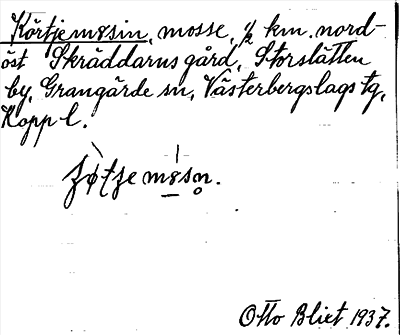 Körtjem8sin, mosse, ½ km. nord-
öst Skräddarns gård, Storslätten
by, Grangärde sn, Västerbergslags tg,
Kopp l.
Otto Blixt 1937.